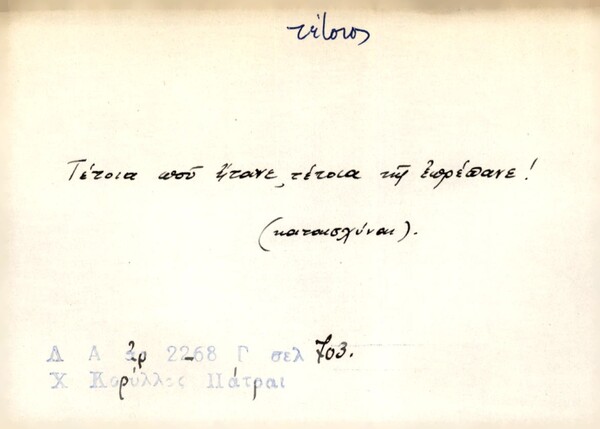 τέτοιος
Τέτοια ποὺ ἤτανε, τέτοια τῆς ἐπρέπανε!
(καταισχύναι).
Λ Α ἀρ 2268 Γ σελ 703.
Χ Κορύλλος Πάτραι